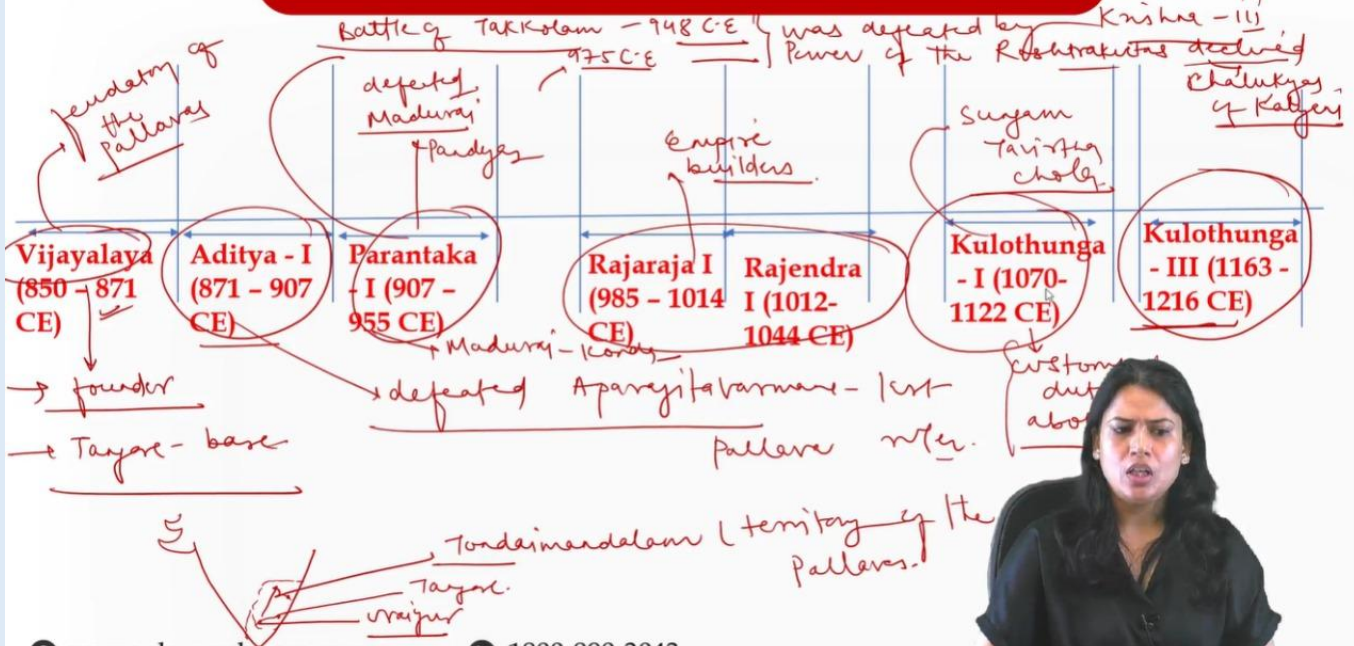 Battle of Takkolam - 948 C.E was defeated by Krishna - III
975 C.E Power of the Rashtrakutas declined
Chalukyas of Kalyani
feudatory of
the
Pallavas
defeated
Madurai
Pandyas
Empire
builders
Sungam
Tavirtta
Chola
Vijayalaya
(850 – 871
CE)
Aditya - I
(871 – 907
CE)
Parantaka
- I (907 –
955 CE)
Rajaraja I
(985 – 1014
CE)
Rajendra
I (1012-
1044 CE)
Kulothunga
- I (1070-
1122 CE)
Kulothunga
- III (1163 -
1216 CE)
→ founder
→ Tanjore - base
Madurai - Konda
defeated Aparajitavarman - last
Pallava ruler.
custom
Tondaimandalam (territory of the
Pallavas.
Tanjore.
Uraiyur